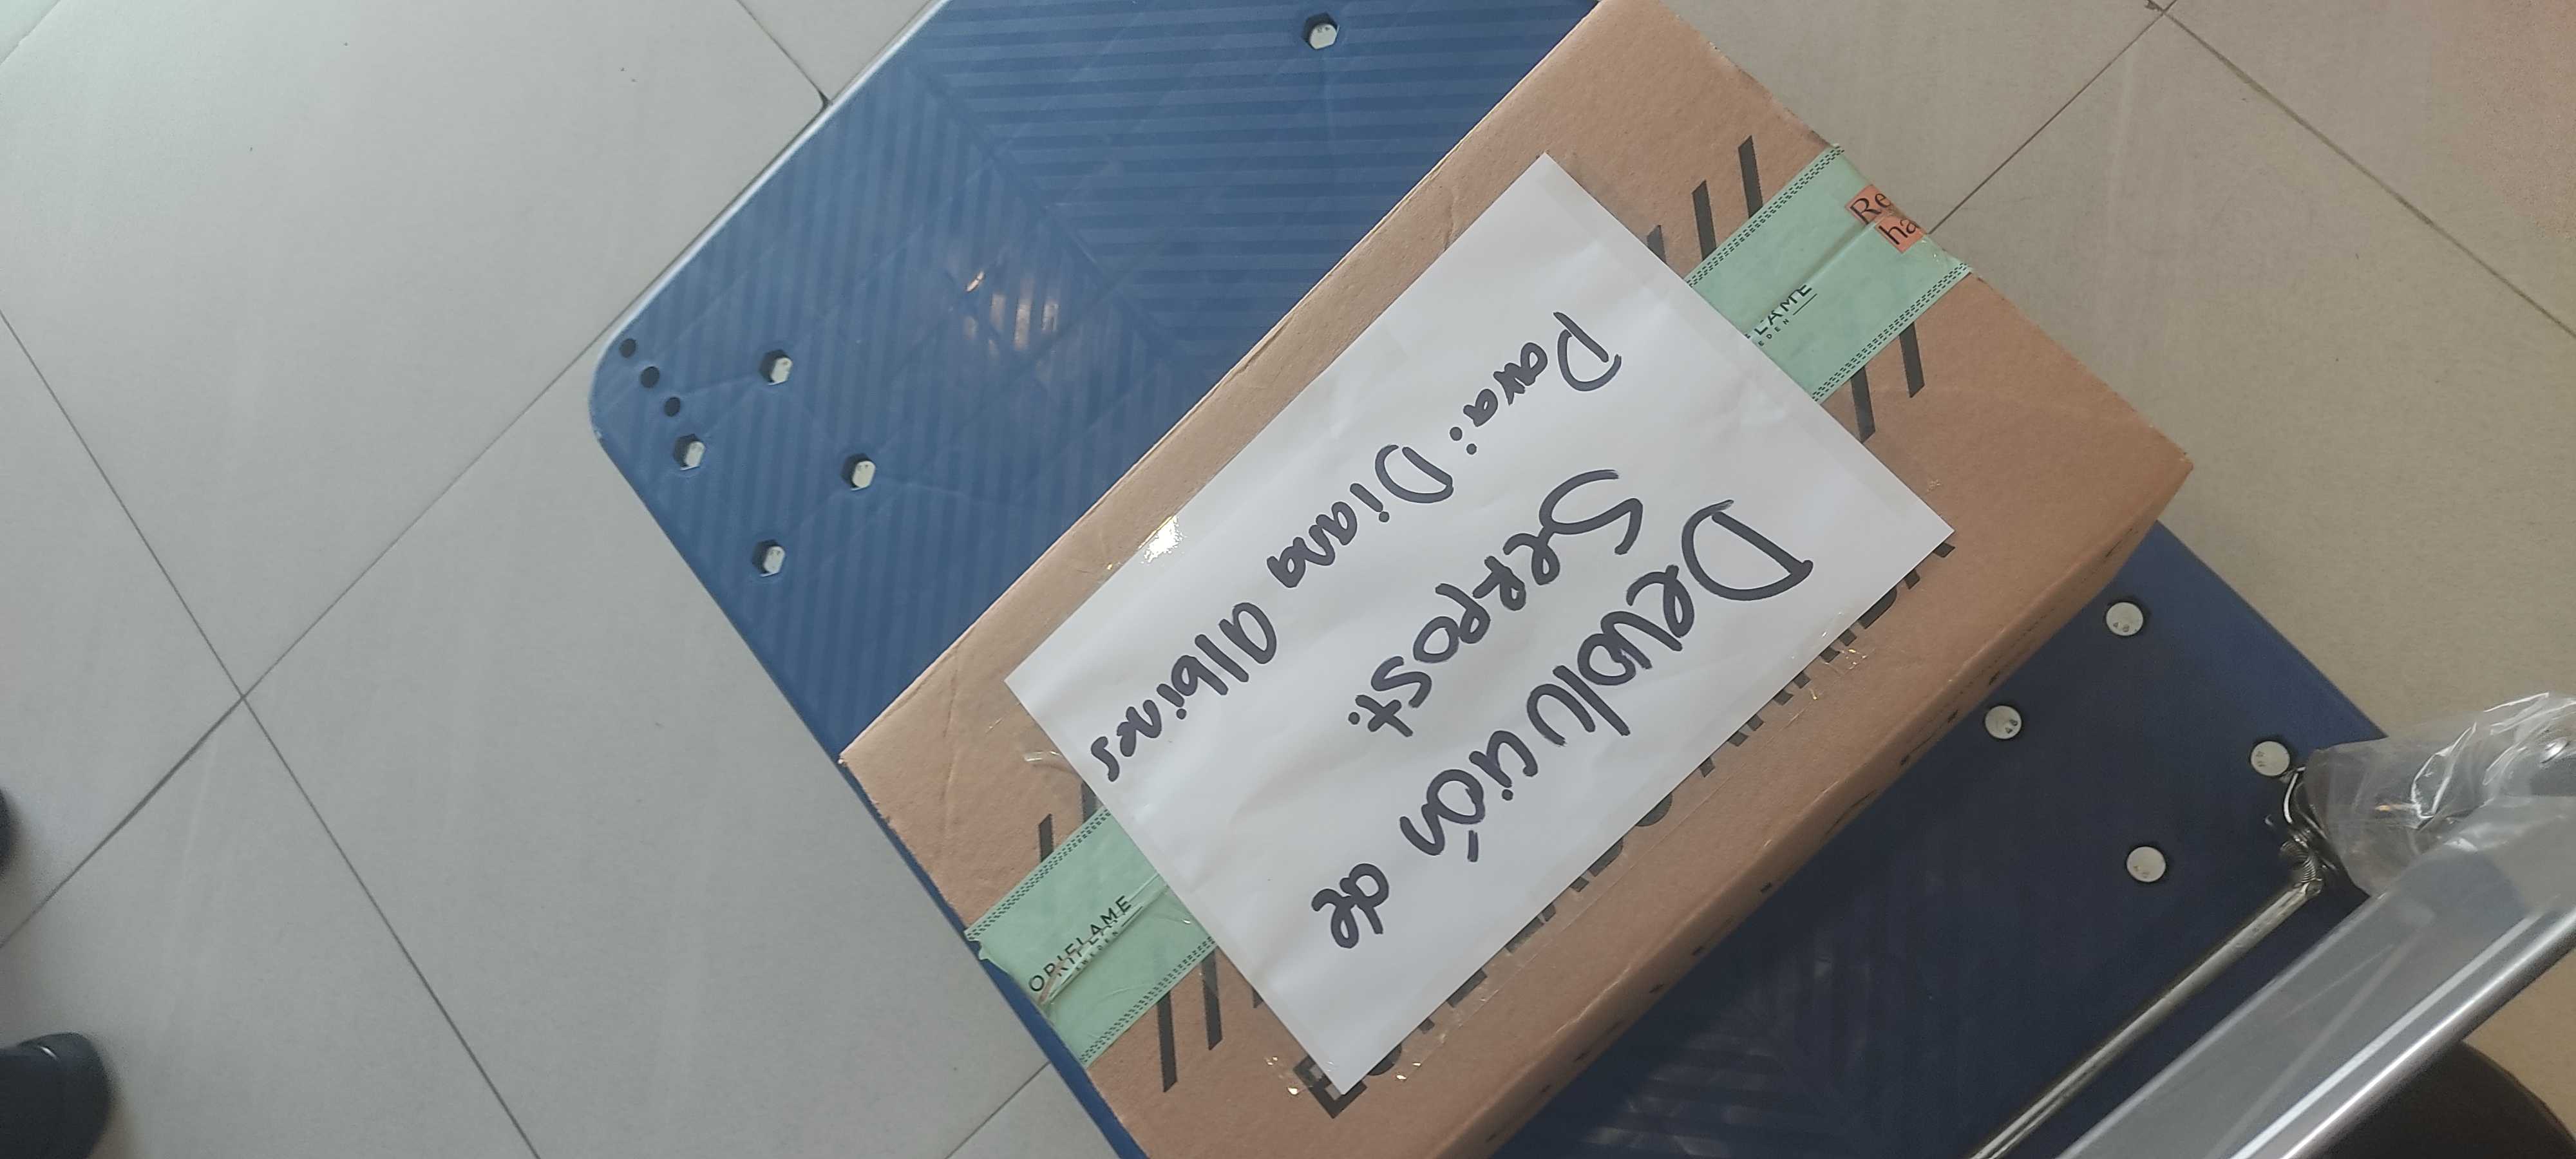 Devolución de
Serpost.
Para: Diana Albines
ORIFLAME
SWEDEN
LAME
EDEN
Re
ha